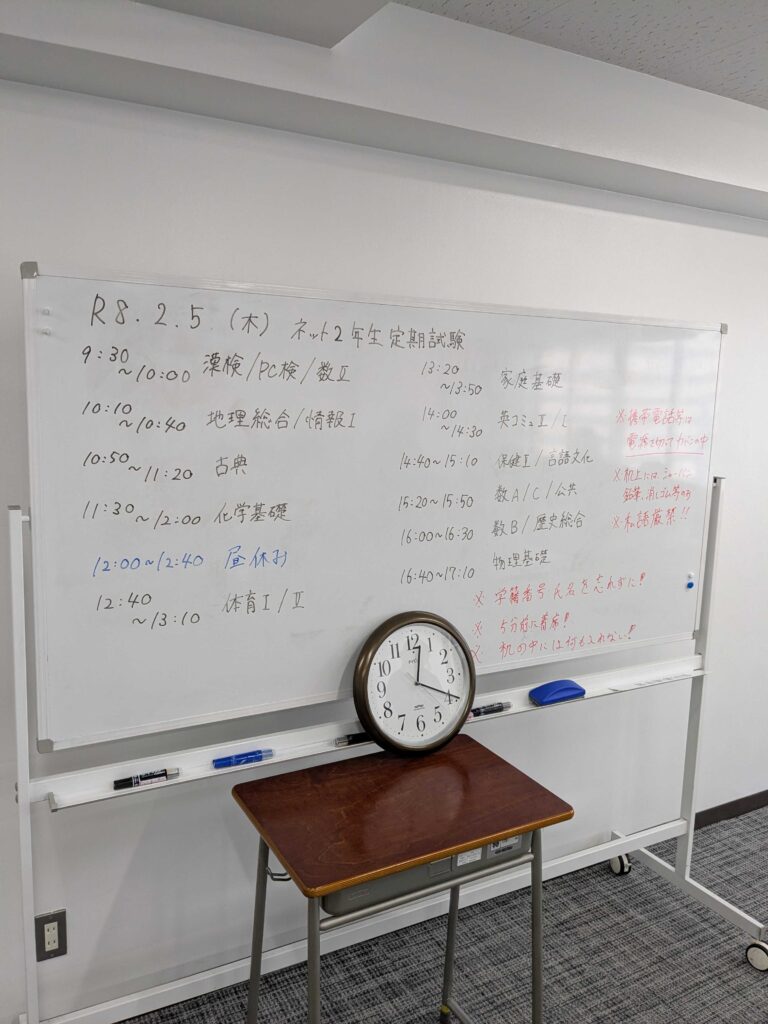 R8.2.5.(木) ネット2年生定期試験
9:30~10:00 漢検/PC検/数Ⅱ
10:10~10:40 地理総合/情報Ⅰ
10:50~11:20 古典
11:30~12:00 化学基礎
12:00~12:40 昼休み
12:40~13:10 体育Ⅰ/Ⅱ
13:20~13:50 家庭基礎
14:00~14:30 英コミュⅡ/Ⅰ
14:40~15:10 保健Ⅰ/言語文化
15:20~15:50 数A/C/公共
16:00~16:30 数B/歴史総合
16:40~17:10 物理基礎
※携帯電話等は
電源を切ってカバンの中
※机上には、シャーペン
鉛筆、消しゴム等のみ
※私語厳禁!!
※ 学籍番号氏名を忘れずに!
※ 5分前に着席!
※ 机の中には何も入れない!
12
1
2
3
4
5
6
7
8
9
10
11